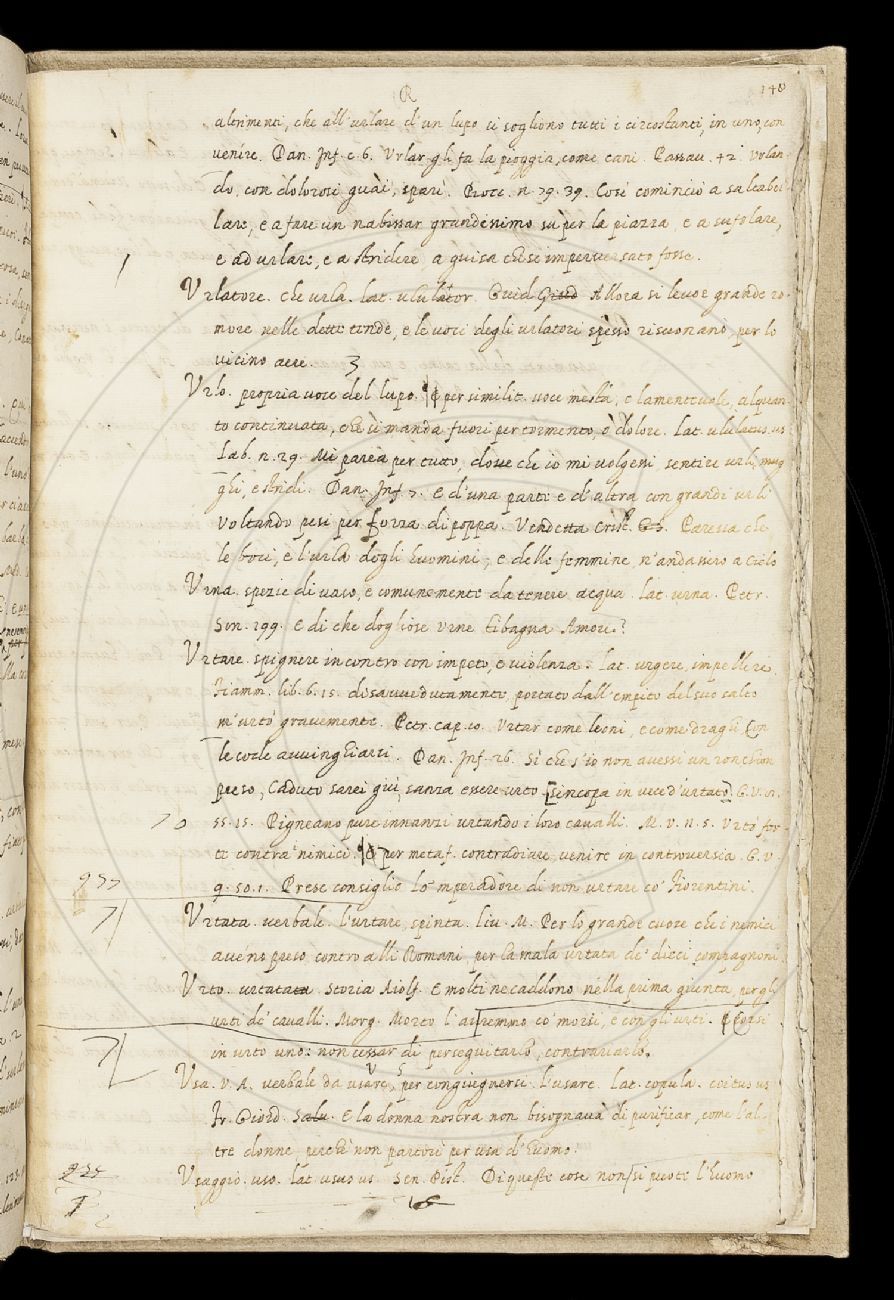 R
148
altrimenti, che all'urlare d'un lupo ci sogliono tutti i circostanti, in uno, con
venire. Dan. Inf. c. 6. Urlar gli fa la pioggia, come cani. Passau. 42. Urlan-
do, con dolorosi guài, sparì. Bocc. n. 79. 39. Così cominciò a saltabel-
lare, e a fare un nabissar grandissimo sù per la piazza, e a sufolare,
e ad urlare, e a stridere a guisa che se imperversato fosse.
Urlatore. che urla. lat. ululator. Guid. Giud. Allora si levoe grande ro-
more nelle dette tende, e le voci degli urlatori spesso risuonano, per lo
vicino aere. 3
Urlo. propria voce del lupo. ¶ per similit. voce mesta, e lamentevole, alquan-
to continuata, che si manda fuori per tormento, ò dolore. lat. ululatus. us
Lab. n. 29. Mi parea per tutto, dove che io mi volgessi, sentire urli, mug-
ghi, e stridi. Dan. Inf. 7. e d'una parte e d'altra con grandi urli
Voltando pesi per forza di poppa. Vendetta Crist. Paressa che
le boci, e l'urla degli huomini, e delle femmine, n'andassero a Cielo
Urna. spezie di vaso, e comunemente da tenere acqua. lat. urna. Petr.
Son. 299. E di che dogliose urne si bagna Amore?
Urtare. spignere incontro con impeto, e violenza. lat. urgere, impellere.
Fiamm. lib. 6. 15. disavvedutamente, portato dall'empito del suo salto
m'urtò gravemente. Petr. cap. 10. Urtar come leoni, e come draghi Con
le code avvinghiarsi. Dan. Inf. 26. Sì che s'io non avessi un ronchion
preso, Caduto sarei giù, sanza essere urto [sincopa in vece d'urtato]. G. V. 11.
70 55. 15. Pigneano pure innanzi urtando i loro cavalli. M. V. n. 5. Urtò for-
te contra nimici. ¶ per metaf. contradiare, venire in controversia. G. V.
977 9. 50. 1. Prese consiglio lo 'mperadore di non urtare co' Fiorentini.
71 Urtata. verbale. l'urtare, spinta. liv. M. Per lo grande cuore che i nemici
aveno preso contro alli Romani, per la mala urtata de' dieci compagnoni.
Urto. urtata. Storia Aiolf. E molti ne caddono nella prima giunta, per gli
urti de' cavalli. Morg. Morto l'avremmo co' morsi, e con gli urti. ¶
71 in urto uno: non cessar di perseguitarlo, contrariarlo.
Usa. V. A. verbale da usare, per congiugnersi. l'usare. lat. copula. coitus us
Fr. Giord. Salu. E la donna nostra non bisognavà di purificar, come l'al-
tre donne, perchè non partorì per usa d'huomo.
Usaggio. uso. lat. usus us. Sen. Pist. Di queste cose non si puote l'huomo